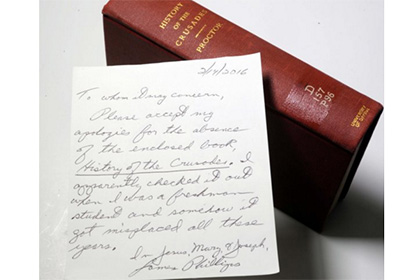 HISTORY
OF THE
CRUSADES
PROCTOR
D
157
P96
UNIVERSITY
OF DAYTON
2/17/2016
To whom it may concern,
Please accept my
apologies for the absence
of the enclosed book,
History of the Crusades. I
apparently checked it out
when I was a freshman
student and somehow it
got misplaced all these
years.
In Jesus, Mary & Joseph,
James Phillips